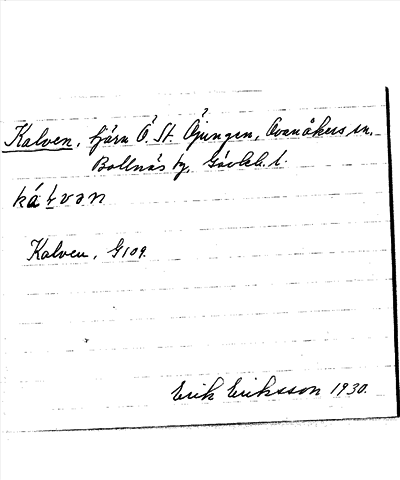 Kalven, tjärn Ö. St. Öjungen, Ovanåkers sn.
Bollnäs tg, Gävleb. l.
ká๖vən
Kalven, G109.
Erik Eriksson 1930.